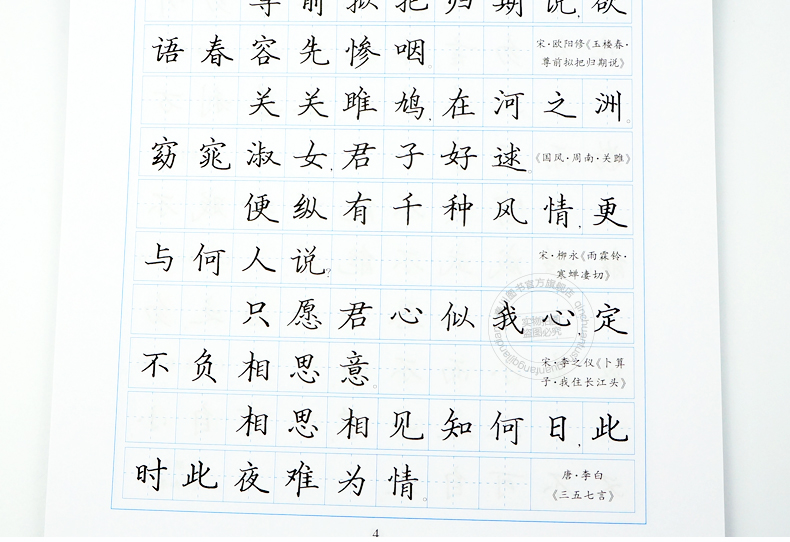 尊前拟把归期说,欲
语春容先惨咽。
宋·欧阳修《玉楼春·
尊前拟把归期说》
关关雎鸠,在河之洲。
窈窕淑女,君子好逑。
《国风·周南·关雎》
便纵有千种风情,更
与何人说?
宋·柳永《雨霖铃·
寒蝉凄切》
只愿君心似我心,定
不负相思意。
宋·李之仪《卜算
子·我住长江头》
相思相见知何日,此
时此夜难为情。
唐·李白
《三五七言》
4